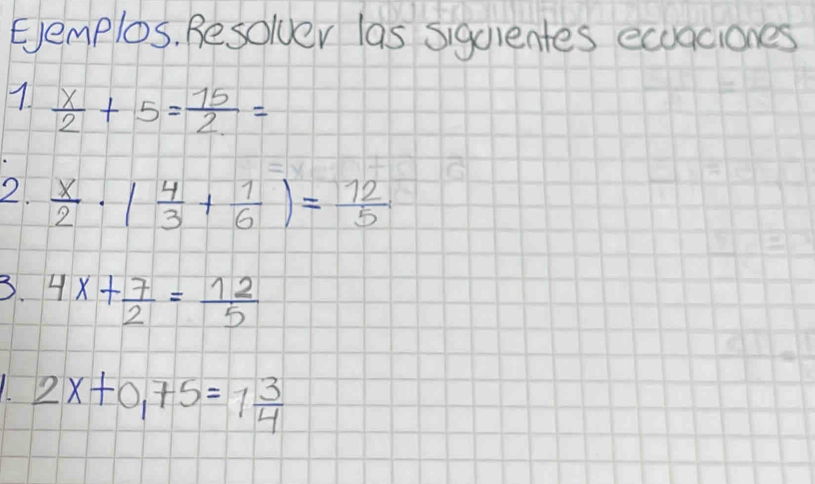 Ejemplos. Resolver las siguientes ecuaciones
1. x/2 + 5 = 15/2 =
2. x/2 · ( 4/3 + 1/6 ) = 12/5
3. 4x + 7/2 = 12/5
2x + 0,75 = 1 3/4